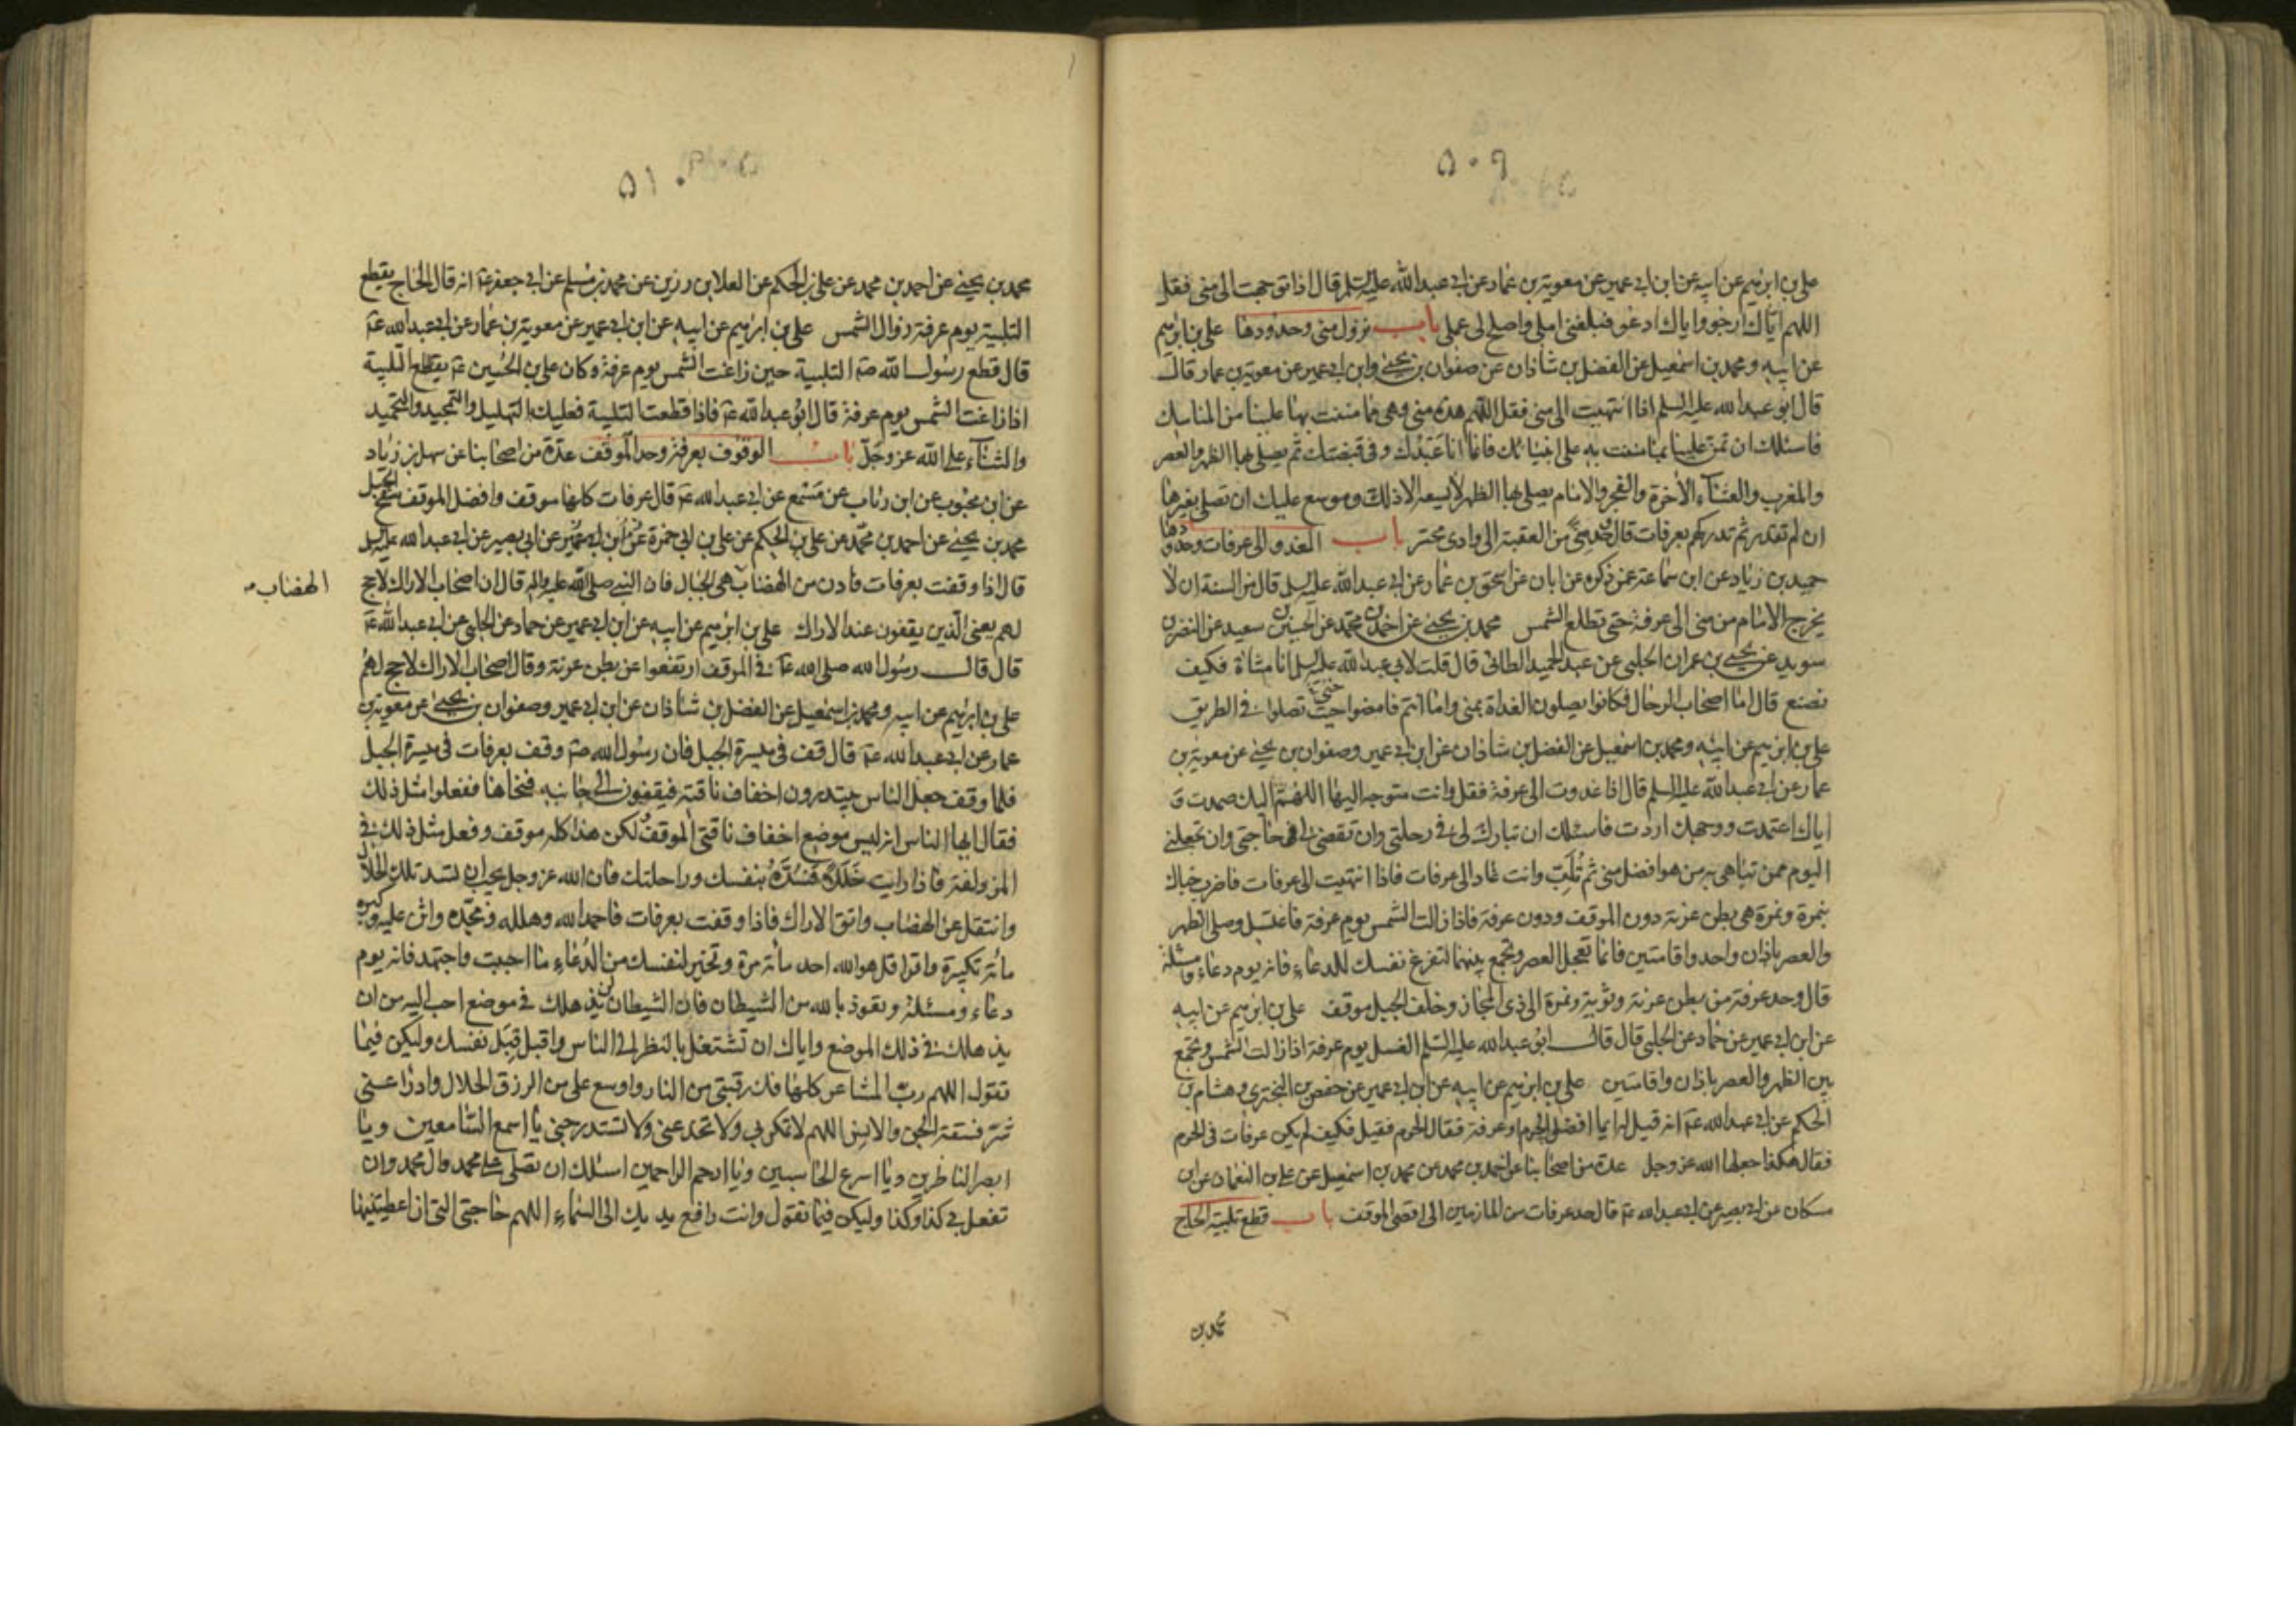 ۵۰۹
علي بن ابرهيم عن ابيه عن ابن ابي عمير عن معوية بن عمار عن ابي عبد الله عليه السلم قال اذا توجهت الى منى فقل
اللهم اياك ارجو واياك ادعو فبلغني املي واصلح لي عملي باب نزول منى وحدودها علي بن ابرهيم
عن ابيه ومحمد بن اسمعيل عن الفضل بن شاذان عن صفوان بن يحيى وابن ابي عمير عن معوية بن عمار قال
قال ابو عبد الله عليه السلم اذا انتهيت الى منى فقل اللهم هذه منى وهي مما مننت بها علينا من المناسك
فاسئلك ان تمن علينا بما مننت به على انبيائك فانما انا عبدك وفي قبضتك ثم يصلي بها الظهر والعصر
والمغرب والعشاء الاخرة والفجر والامام يصلي بها الظهر لا يسعه الا ذلك وموسع عليك ان تصلي بغيرها
ان لم تقدر ثم تدركهم بعرفات قال وحد منى من العقبة الى وادي محسر باب الغدو الى عرفات وحدودها
حميد بن زياد عن ابن سماعة عمن ذكره عن ابان عن اسحق بن عمار عن ابي عبد الله عليه السلم قال من السنة ان لا
يخرج الامام من منى الى عرفة حتى تطلع الشمس محمد بن يحيى عن احمد بن محمد عن الحسين بن سعيد عن النضر بن
سويد عن يحيى بن عمران الحلبي عن عبد الحميد الطائي قال قلت لابي عبد الله عليه السلم انا مشاة فكيف
نصنع قال اما اصحاب الرحال فكانوا يصلون الغداة بمنى واما انتم فامضوا حيث تصلوا في الطريق
علي بن ابرهيم عن ابيه ومحمد بن اسمعيل عن الفضل بن شاذان عن ابن ابي عمير وصفوان بن يحيى عن معوية بن
عمار عن ابي عبد الله عليه السلم قال اذا غدوت الى عرفة فقل وانت متوجه اليها اللهم اليك صمدت و
اياك اعتمدت ووجهك اردت فاسئلك ان تبارك لي في رحلتي وان تقضي لي حاجتي وان تجعلني
اليوم ممن تباهي به من هو افضل مني ثم تلب وانت غاد الى عرفات فاذا انتهيت الى عرفات فاضرب خباك
بنمرة ونمرة هي بطن عرنة دون الموقف ودون عرفة فاذا زالت الشمس يوم عرفة فاغتسل وصل الظهر
والعصر باذان واحد واقامتين فانما تعجل العصر وتجمع بينهما لتفرغ نفسك للدعاء فانه يوم دعاء ومسئلة
قال وحد عرفة من بطن عرنة وثوية ونمرة الى ذي المجاز وخلف الجبل موقف علي بن ابرهيم عن ابيه
عن ابن ابي عمير عن حماد عن الحلبي قال قال ابو عبد الله عليه السلم الغسل يوم عرفة اذا زالت الشمس وتجمع
بين الظهر والعصر باذان واقامتين علي بن ابرهيم عن ابيه عن ابن ابي عمير عن حفص بن البختري وهشام بن
الحكم عن ابي عبد الله ع انه قيل له ايما افضل الحرم او عرفة فقال الحرم فقيل فكيف لم يكن عرفات في الحرم
فقال هكذا جعلها الله عز وجل عدة من اصحابنا عن احمد بن محمد عن محمد بن اسمعيل عن علي بن النعمان عن ابن
مسكان عن ابي بصير عن ابي عبد الله ع قال حد عرفات من المازمين الى اقصى الموقف باب قطع تلبية الحاج
محمد بن
۵۱۰
محمد بن يحيى عن احمد بن محمد عن علي بن الحكم عن العلا بن رزين عن محمد بن مسلم عن ابي جعفر ع انه قال الحاج يقطع
التلبية يوم عرفة زوال الشمس علي بن ابرهيم عن ابيه عن ابن ابي عمير عن معوية بن عمار عن ابي عبد الله ع
قال قطع رسول الله ص التلبية حين زاغت الشمس يوم عرفة وكان علي بن الحسين ع يقطع التلبية
اذا زاغت الشمس يوم عرفة قال ابو عبد الله ع فاذا قطعت التلبية فعليك التهليل والتمجيد والتحميد
والثناء على الله عز وجل باب الوقوف بعرفة وحد الموقف عدة من اصحابنا عن سهل بن زياد
عن ابن محبوب عن ابن رئاب عن مسمع عن ابي عبد الله ع قال عرفات كلها موقف وافضل الموقف سفح الجبل
محمد بن يحيى عن احمد بن محمد عن علي بن الحكم عن علي بن ابي حمزة عن ابن ابي عمير عن ابي بصير عن ابي عبد الله عليه السلم
قال اذا وقفت بعرفات فادن من الهضاب هي الجبال فان النبي صلى الله عليه واله قال ان اصحاب الاراك لا حج
الهضاب
لهم يعني الذين يقفون عند الاراك علي بن ابرهيم عن ابيه عن ابن ابي عمير عن حماد عن الحلبي عن ابي عبد الله ع
قال قال رسول الله صلى الله ع في الموقف ارتفعوا عن بطن عرنة وقال اصحاب الاراك لا حج لهم
علي بن ابرهيم عن ابيه ومحمد بن اسمعيل عن الفضل بن شاذان عن ابن ابي عمير وصفوان بن يحيى عن معوية بن
عمار عن ابي عبد الله ع قال قف في ميسرة الجبل فان رسول الله ص وقف بعرفات في ميسرة الجبل
فلما وقف جعل الناس يبتدرون اخفاف ناقته فيقفون الى جانبه فنحاها ففعلوا مثل ذلك
فقال ايها الناس انه ليس موضع اخفاف ناقتي الموقف لكن هذا كله موقف وفعل مثل ذلك في
المزدلفة فاذا رايت خللا فسده بنفسك وراحلتك فان الله عز وجل يحب ان تسد تلك الخلال
وانتقل عن الهضاب واتق الاراك فاذا وقفت بعرفات فاحمد الله وهلله ومجده واثن عليه وكبره
مائة تكبيرة واقرا قل هو الله احد مائة مرة وتخير لنفسك من الدعاء ما احببت واجتهد فانه يوم
دعاء ومسئلة وتعوذ بالله من الشيطان فان الشيطان لن يذهلك في موضع احب اليه من ان
يذهلك في ذلك الموضع واياك ان تشتغل بالنظر الى الناس واقبل قبل نفسك وليكن فيما
تقول اللهم رب المشاعر كلها فك رقبتي من النار واوسع علي من الرزق الحلال وادرا عني
شر فسقة الجن والانس اللهم لا تمكر بي ولا تخدعني ولا تستدرجني يا اسمع السامعين ويا
ابصر الناظرين ويا اسرع الحاسبين ويا ارحم الراحمين اسئلك ان تصلي على محمد وال محمد وان
تفعل بي كذا وكذا وليكن فيما تقول وانت رافع يديك الى السماء اللهم حاجتي التي ان اعطيتنيها